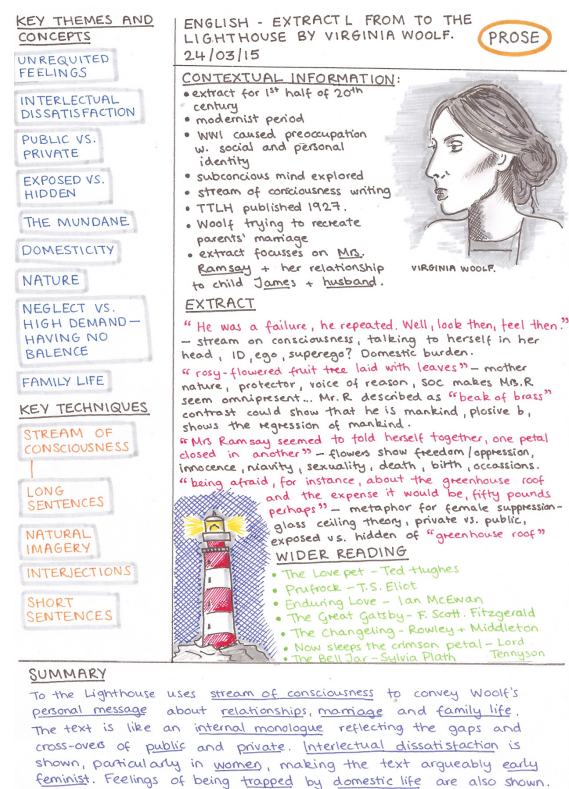 KEY THEMES AND
CONCEPTS
UNREQUITED
FEELINGS
INTERLECTUAL
DISSATISFACTION
PUBLIC VS.
PRIVATE
EXPOSED VS.
HIDDEN
THE MUNDANE
DOMESTICITY
NATURE
NEGLECT VS.
HIGH DEMAND—
HAVING NO
BALENCE
FAMILY LIFE
KEY TECHNIQUES
STREAM OF
CONSCIOUSNESS
LONG
SENTENCES
NATURAL
IMAGERY
INTERJECTIONS
SHORT
SENTENCES
ENGLISH - EXTRACT 1 FROM TO THE
LIGHTHOUSE BY VIRGINIA WOOLF.
24/03/15
PROSE
CONTEXTUAL INFORMATION:
• extract for 1st half of 20th
century
• modernist period
• WWI caused preoccupation
w. social and personal
identity
• subconcious mind explored
• stream of consciousness writing
• TTLH published 1927.
• Woolf trying to recreate
parents' marriage
• extract focusses on Mrs.
Ramsay + her relationship
to child James + husband.
VIRGINIA WOOLF.
EXTRACT
"He was a failure, he repeated. Well, look then, feel then."
— stream on consciousness, talking to herself in her
head, ID, ego, superego? Domestic burden.
"rosy-flowered fruit tree laid with leaves" — mother
nature, protector, voice of reason, SOC makes Mrs.R
seem omnipresent... Mr. R described as "beak of brass"
contrast could show that he is mankind, plosive b,
shows the regression of mankind.
"Mrs Ramsay seemed to told herself together, one petal
closed in another" — flowers show freedom/oppression,
innocence, niavity, sexuality, death, birth, occassions.
"being afraid, for instance, about the greenhouse roof
and the expense it would be, fifty pounds
perhaps" — metaphor for female suppression-
glass ceiling theory, private vs. public,
exposed vs. hidden of "greenhouse roof"
WIDER READING
• The Lovepet - Ted Hughes
• Prufrock - T.S. Eliot
• Enduring Love - Ian McEwan
• The Great Gatsby - F. Scott. Fitzgerald
• The Changeling - Rowley + Middleton
• Now sleeps the crimson petal - Lord
Tennyson
• The Bell Jar - Sylvia Plath
SUMMARY
To the Lighthouse uses stream of consciousness to convey Woolf's
personal message about relationships, marriage and family life.
The text is like an internal monologue reflecting the gaps and
cross-overs of public and private. Interlectual dissatisfaction is
shown, particularly in women, making the text argueably early
feminist. Feelings of being trapped by domestic life are also shown.